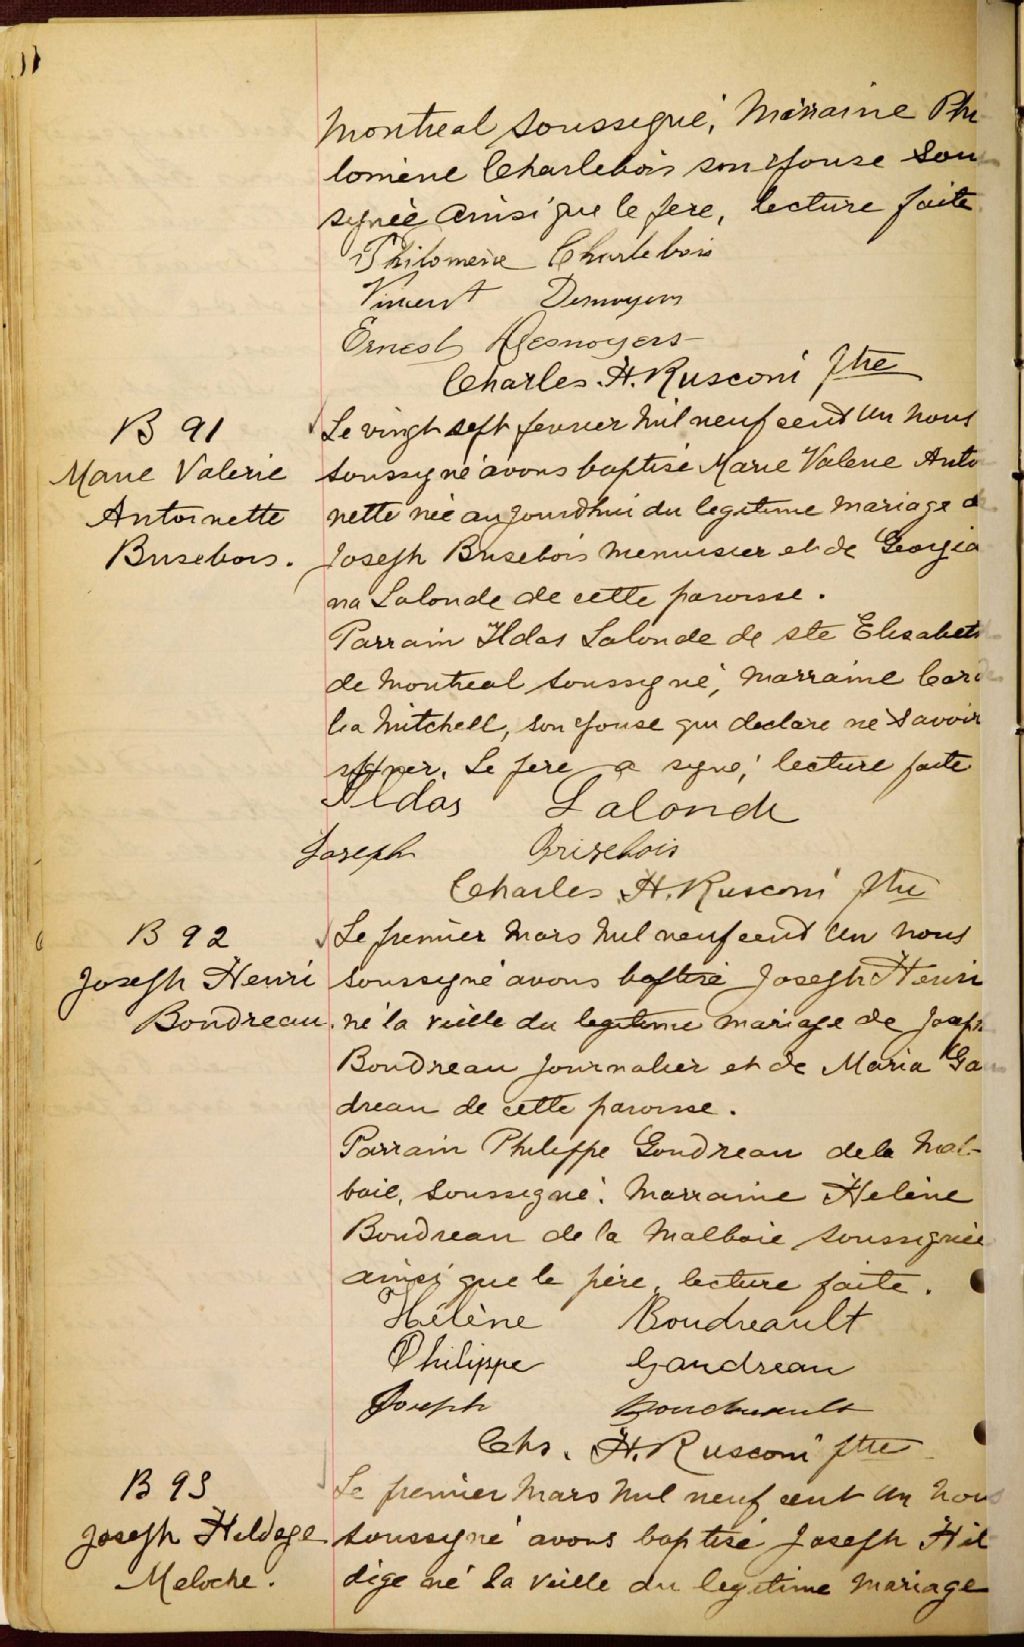 Montreal soussigné, Marraine Phi
lomène Charlebois son epouse sous
signée ainsi que le pere, lecture faite
Philomene Charlebois
Vincent Desnoyers
Ernest Desnoyers
Charles H. Rusconi ptre
B 91
Marie Valerie
Antoinette
Brisebois.
Le vingt sept fevrier mil neuf cent un nous
soussigné avons baptisé Marie Valerie Antoi
nette née aujourdhui du legitime mariage de
Joseph Brisebois menuisier et de Georgia
na Lalonde de cette paroisse.
Parrain Ildas Lalonde de ste Elisabeth
de Montreal soussigné, marraine Corde
lia Mitchell, son epouse qui declare ne savoir
signer. Le pere a signé, lecture faite
Ildas Lalonde
Joseph Brisebois
Charles H. Rusconi ptre
B 92
Joseph Henri
Boudreau.
Le premier Mars mil neuf cent un nous
soussigné avons baptisé Joseph Henri
né la veille du legitime mariage de Joseph
Boudreau journalier et de Maria Gau
dreau de cette paroisse.
Parrain Philippe Goudreau de la Mal-
baie, soussigné. Marraine Helène
Boudreau de la Malbaie soussignée
ainsi que le père, lecture faite.
Hélène Boudreault
Philippe Gaudreau
Joseph Boudreault
Chs. H. Rusconi ptre
B 93
Joseph Hildege
Meloche.
Le premier Mars mil neuf cent un nous
soussigné avons baptisé Joseph Hil
dige né la veille du legitime mariage